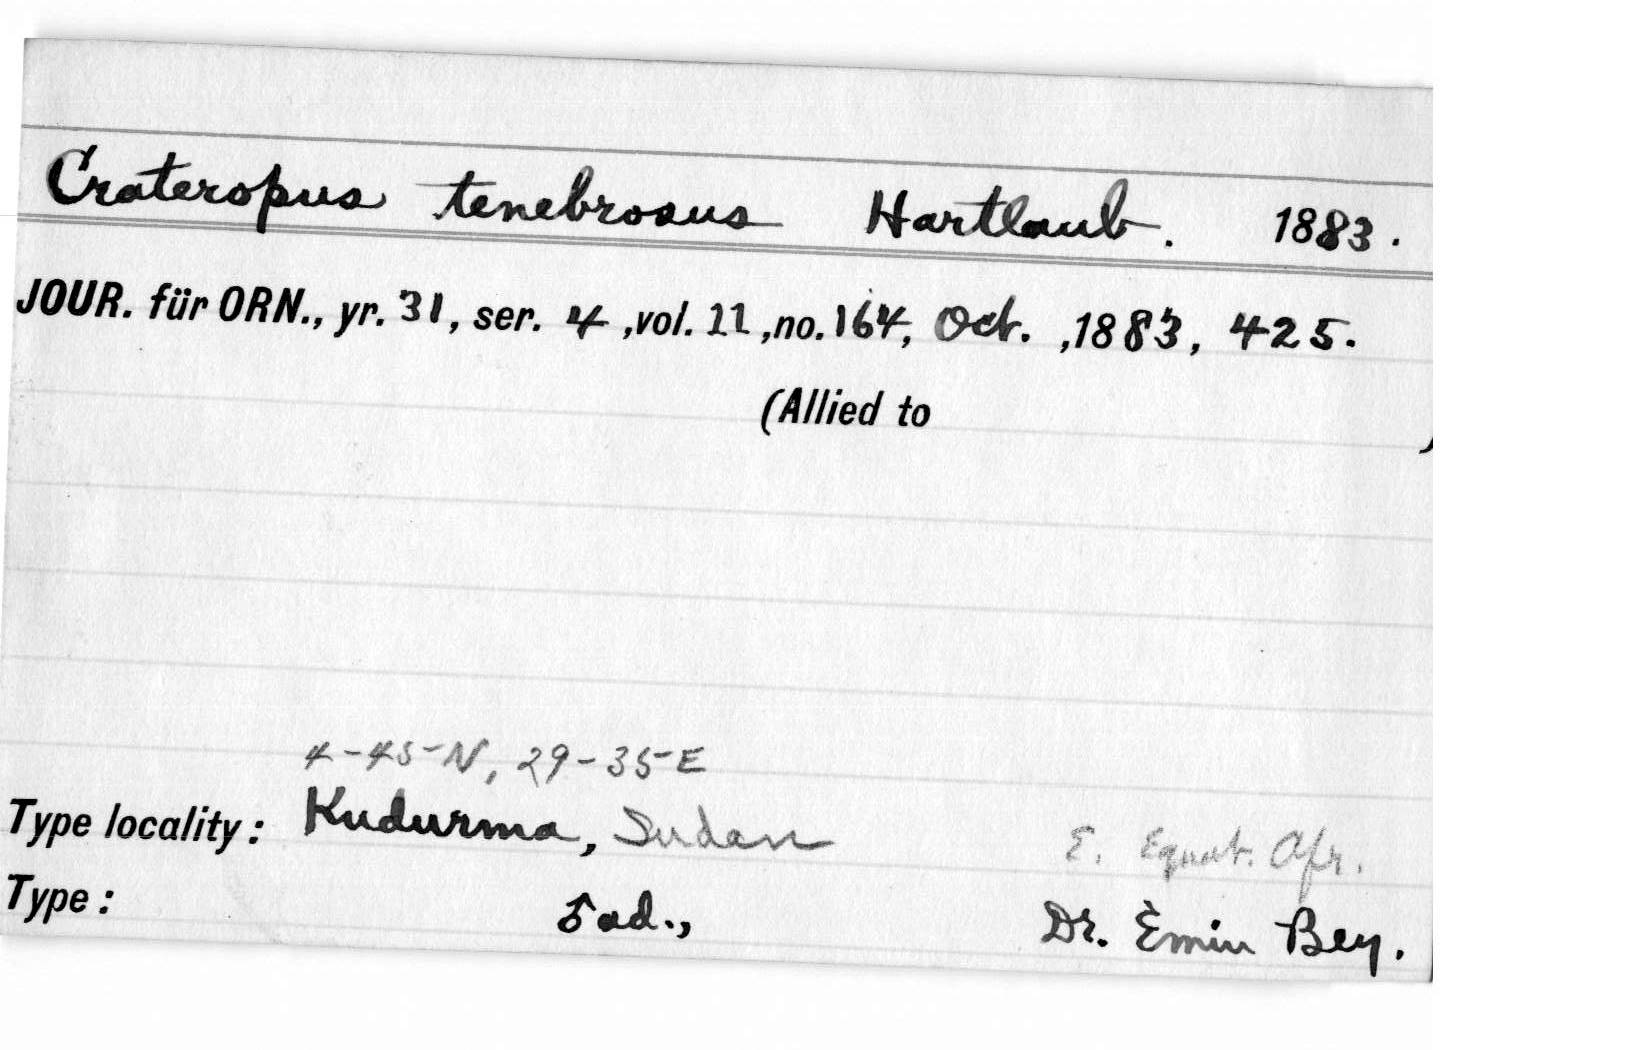 Crateropus tenebrosus Hartlaub. 1883.
JOUR. für ORN., yr. 31, ser. 4, vol. 11, no. 164, Oct., 1883, 425.
(Allied to )
4-45-N, 29-35-E
Type locality: Kudurma, Sudan E. Equat. Afr.
Type: ♂ ad., Dr. Emin Bey.